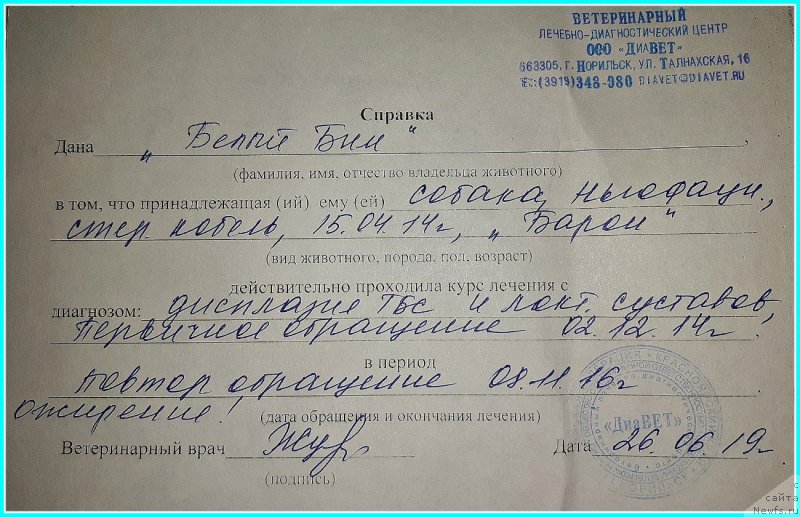 ВЕТЕРИНАРНЫЙ
ЛЕЧЕБНО-ДИАГНОСТИЧЕСКИЙ ЦЕНТР
ООО «ДИАВЕТ»
663305, Г. НОРИЛЬСК, УЛ. ТАЛНАХСКАЯ, 16
(3919)348-980 DIAVET@DIAVET.RU
Справка
Дана „Белый Бим“,
(фамилия, имя, отчество владельца животного)
в том, что принадлежащая (ий) ему (ей) собака, ньюфаун.,
стер. кобель, 15.04.14г, „Барон“
(вид животного, порода, пол, возраст)
действительно проходила курс лечения с
диагнозом: дисплазие ТБС и локт. суставов,
Первичное обращение 02.12.14г.
в период
Повтор. обращение 08.11.16г
ожирение!
(дата обращения и окончания лечения)
«ДиаВЕТ»
Ветеринарный врач Дата 26.06.19г
(подпись)
с сайта
Newfs.ru